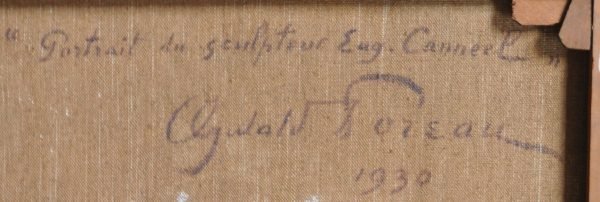 " Portrait du sculpteur Eug. Canneel "
Oswald Poreau
1930